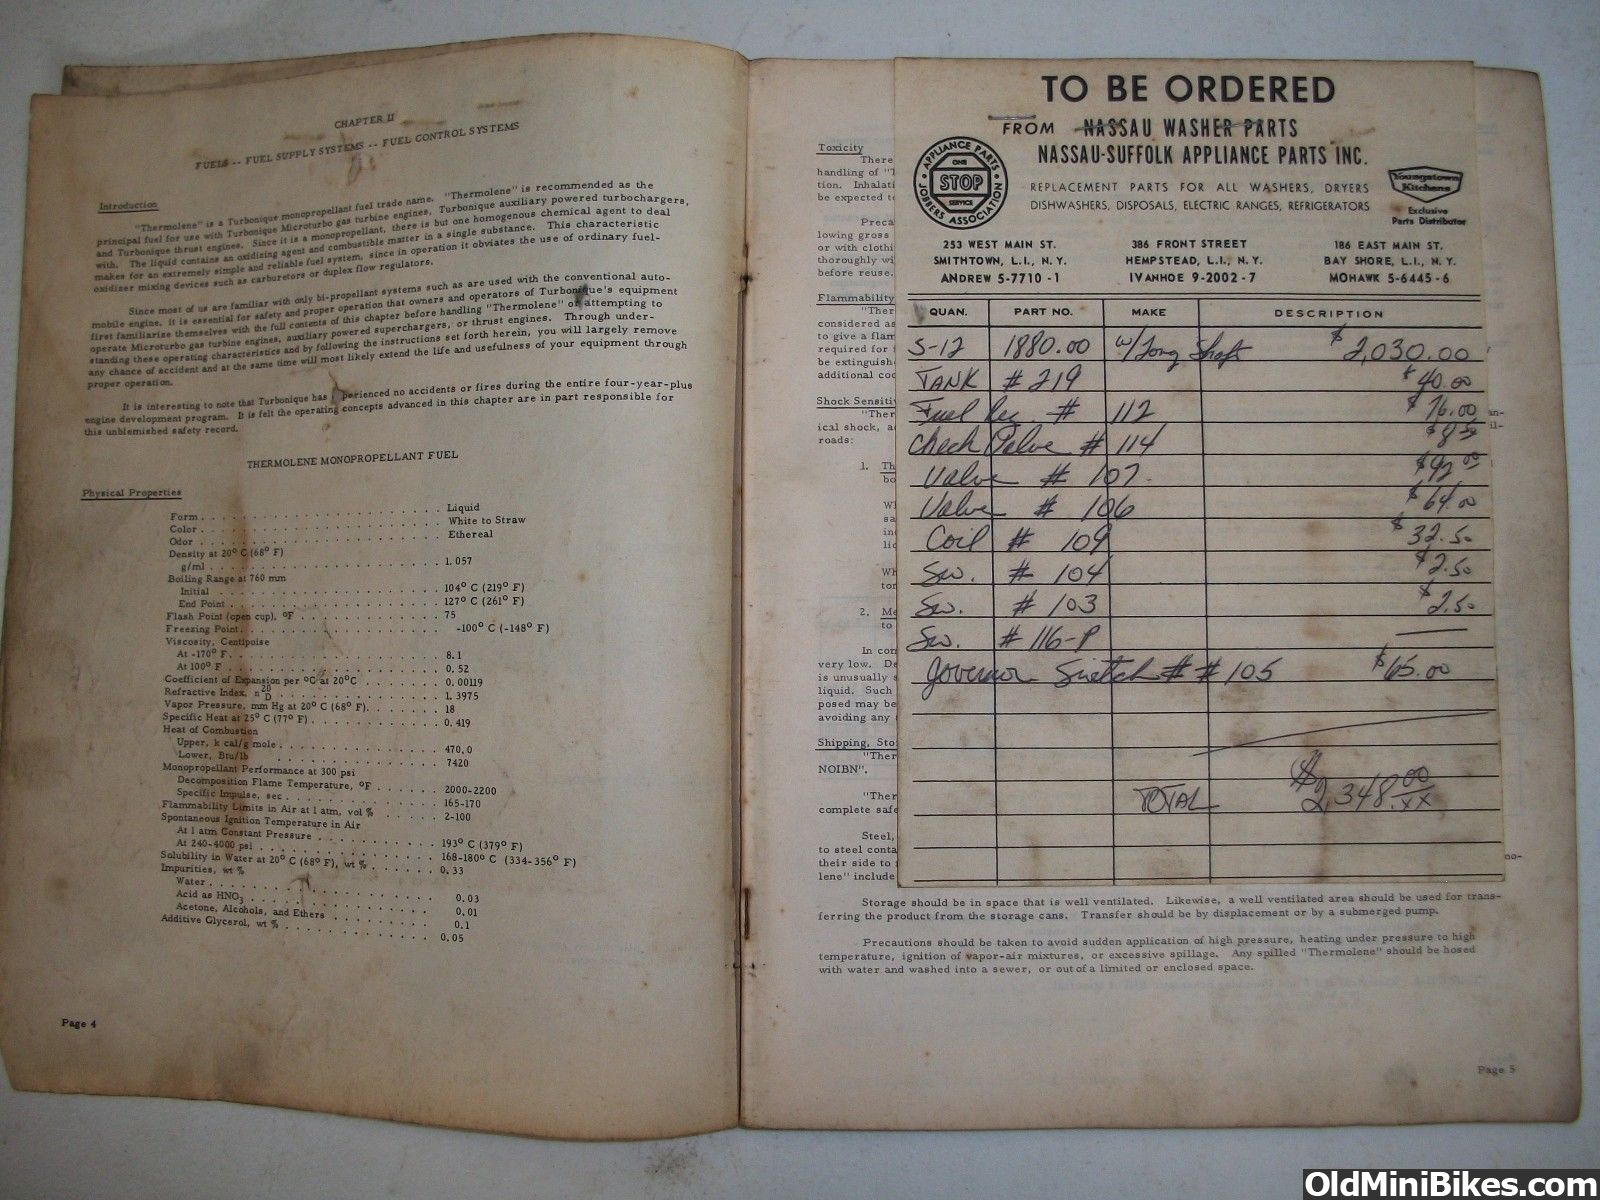 CHAPTER II
FUELS -- FUEL SUPPLY SYSTEMS -- FUEL CONTROL SYSTEMS
Introduction
"Thermolene" is a Turbonique monopropellant fuel trade name. "Thermolene" is recommended as the
principal fuel for use with Turbonique Microturbo gas turbine engines, Turbonique auxiliary powered turbochargers,
and Turbonique thrust engines. Since it is a monopropellant, there is but one homogenous chemical agent to deal
with. The liquid contains an oxidizing agent and combustible matter in a single substance. This characteristic
makes for an extremely simple and reliable fuel system, since in operation it obviates the use of ordinary fuel-
oxidizer mixing devices such as carburetors or duplex flow regulators.
Since most of us are familiar with only bi-propellant systems such as are used with the conventional auto-
mobile engine, it is essential for safety and proper operation that owners and operators of Turbonique's equipment
first familiarize themselves with the full contents of this chapter before handling "Thermolene" or attempting to
operate Microturbo gas turbine engines, auxiliary powered superchargers, or thrust engines. Through under-
standing these operating characteristics and by following the instructions set forth herein, you will largely remove
any chance of accident and at the same time will most likely extend the life and usefulness of your equipment through
proper operation.
It is interesting to note that Turbonique has experienced no accidents or fires during the entire four-year-plus
engine development program. It is felt the operating concepts advanced in this chapter are in part responsible for
this unblemished safety record.
THERMOLENE MONOPROPELLANT FUEL
Physical Properties
Form . . . . . . . . . . Liquid
Color . . . . . . . . . . White to Straw
Odor . . . . . . . . . . Ethereal
Density at 20° C (68° F)
g/ml . . . . . . . . . . 1.057
Boiling Range at 760 mm
Initial . . . . . . . . . . 104° C (219° F)
End Point . . . . . . . . . . 127° C (261° F)
Flash Point (open cup), °F . . . . . . . . . . 75
Freezing Point . . . . . . . . . . -100° C (-148° F)
Viscosity, Centipoise
At -170° F . . . . . . . . . . 8.1
At 100° F . . . . . . . . . . 0.52
Coefficient of Expansion per °C at 20°C . . . . . . . . . . 0.00119
Refractive Index, n 20 D . . . . . . . . . . 1.3975
Vapor Pressure, mm Hg at 20° C (68° F) . . . . . . . . . . 18
Specific Heat at 25° C (77° F) . . . . . . . . . . 0.419
Heat of Combustion
Upper, k cal/g mole . . . . . . . . . . 470.0
Lower, Btu/lb . . . . . . . . . . 7420
Monopropellant Performance at 300 psi
Decomposition Flame Temperature, °F . . . . . . 2000-2200
Specific Impulse, sec . . . . . . . . . . 165-170
Flammability Limits in Air at 1 atm, vol % . . . . . . 2-100
Spontaneous Ignition Temperature in Air
At 1 atm Constant Pressure . . . . . . . . . . 193° C (379° F)
At 240-4000 psi . . . . . . . . . . 168-180° C (334-356° F)
Solubility in Water at 20° C (68° F), wt % . . . . . . 0.33
Impurities, wt %
Water . . . . . . . . . . 0.03
Acid as HNO3 . . . . . . . . . . 0.01
Acetone, Alcohols, and Ethers . . . . . . . . . . 0.1
Additive Glycerol, wt % . . . . . . . . . . 0.05
Page 4
Toxicity
There
handling of "T
tion. Inhalati
be expected to
Preca
lowing gross
or with clothi
thoroughly wi
before reuse.
Flammability
"Ther
considered as
to give a flam
required for
be extinguish
additional coo
Shock Sensiti
"Ther
ical shock, a
roads:
1. Th
bo
Wh
sa
in
lic
Wh
tor
2. Me
to
In con
very low. De
is unusually s
liquid. Such
posed may be
avoiding any
Shipping, Sto
"Ther
NOIBN".
"Ther
complete safe
Steel,
to steel conta
their side to
lene" include
TO BE ORDERED
FROM NASSAU WASHER PARTS
NASSAU-SUFFOLK APPLIANCE PARTS INC.
APPLIANCE PARTS JOBBERS ASSOCIATION
ONE STOP SERVICE
REPLACEMENT PARTS FOR ALL WASHERS, DRYERS
DISHWASHERS, DISPOSALS, ELECTRIC RANGES, REFRIGERATORS
Youngstown Kitchens
Exclusive
Parts Distributor
253 WEST MAIN ST. 386 FRONT STREET 186 EAST MAIN ST.
SMITHTOWN, L.I., N.Y. HEMPSTEAD, L.I., N.Y. BAY SHORE, L.I., N.Y.
ANDREW 5-7710-1 IVANHOE 9-2002-7 MOHAWK 5-6445-6
QUAN. PART NO. MAKE DESCRIPTION
S-12 1880.00 w/ Long Shaft $2,030.00
TANK # 219 $40.00
Fuel Reg # 112 $16.00
Check Valve # 114 $8.50
Valve # 107 $92.00
Valve # 106 $64.00
Coil # 109 $32.50
Sw. # 104 $2.50
Sw. # 103 $2.50
Sw. # 116-P
Governor Switch # # 105 $65.00
TOTAL $2,348.00/xx
an-
il-
no-
Storage should be in space that is well ventilated. Likewise, a well ventilated area should be used for trans-
ferring the product from the storage cans. Transfer should be by displacement or by a submerged pump.
Precautions should be taken to avoid sudden application of high pressure, heating under pressure to high
temperature, ignition of vapor-air mixtures, or excessive spillage. Any spilled "Thermolene" should be hosed
with water and washed into a sewer, or out of a limited or enclosed space.
Page 5
OldMiniBikes.com